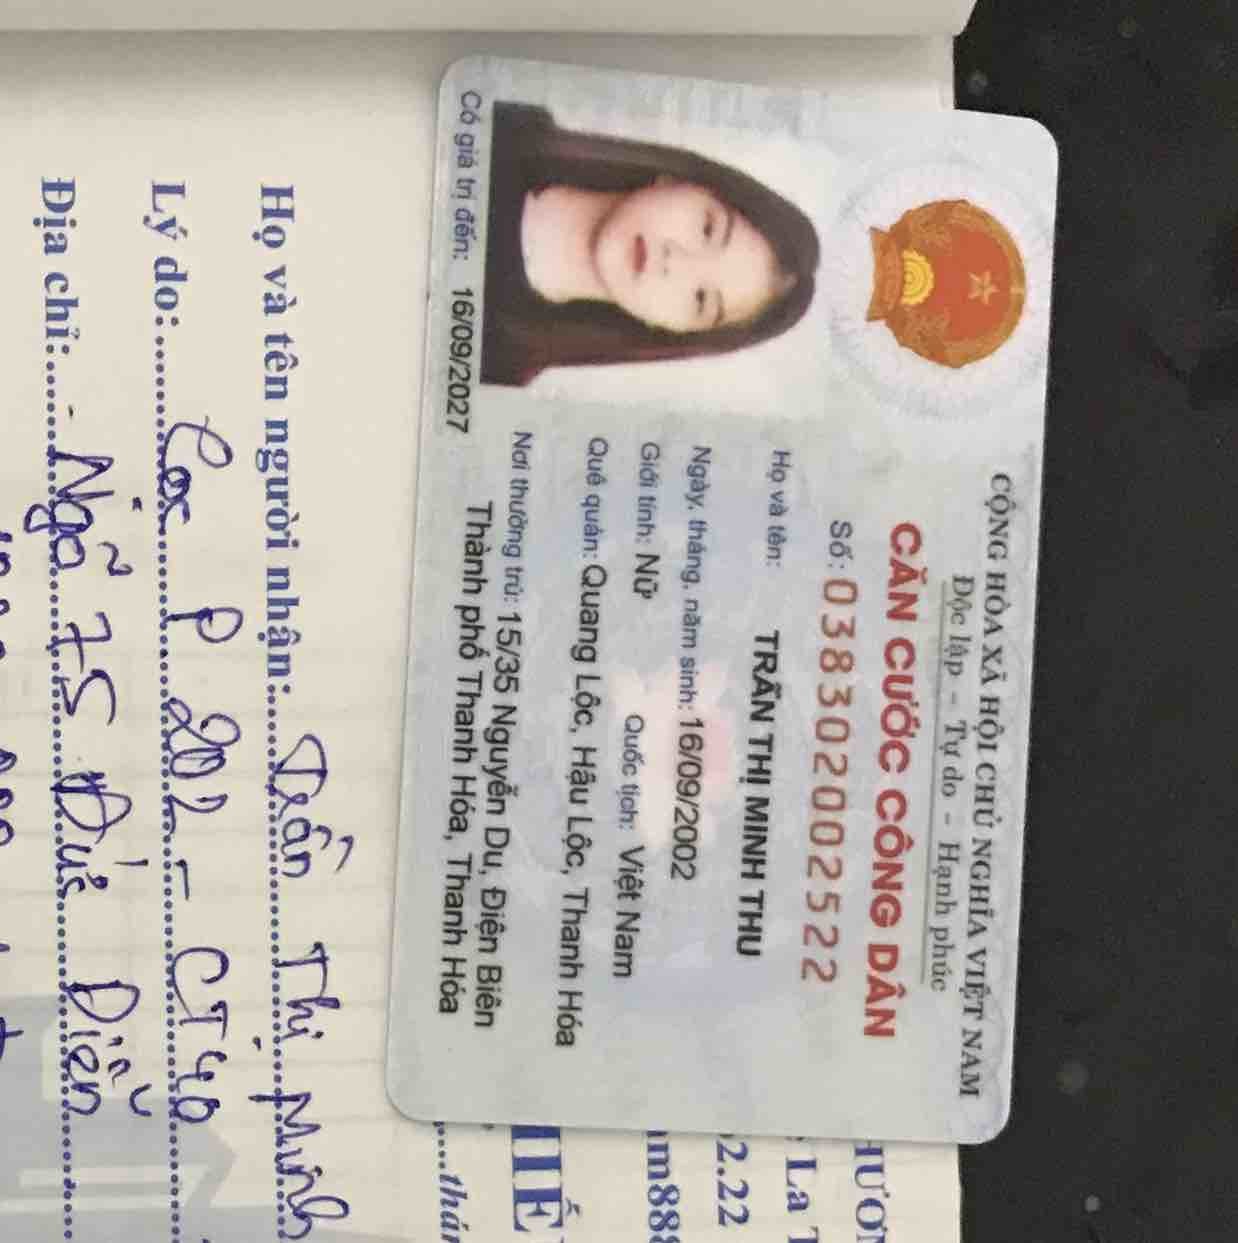 CỘNG HÒA XÃ HỘI CHỦ NGHĨA VIỆT NAM
Độc lập - Tự do - Hạnh phúc
CĂN CƯỚC CÔNG DÂN
Số: 038302002522
Họ và tên:
TRẦN THỊ MINH THU
Ngày, tháng, năm sinh: 16/09/2002
Giới tính: Nữ Quốc tịch: Việt Nam
Quê quán: Quang Lộc, Hậu Lộc, Thanh Hóa
Nơi thường trú: 15/35 Nguyễn Du, Điện Biên
Thành phố Thanh Hóa, Thanh Hóa
Có giá trị đến: 16/09/2027
La
2.22
m88
HIẾ
Họ và tên người nhận: Trần Thị Minh
Lý do: Cọc P 202 - CT40
Địa chỉ: - Ngõ 75 Diễn